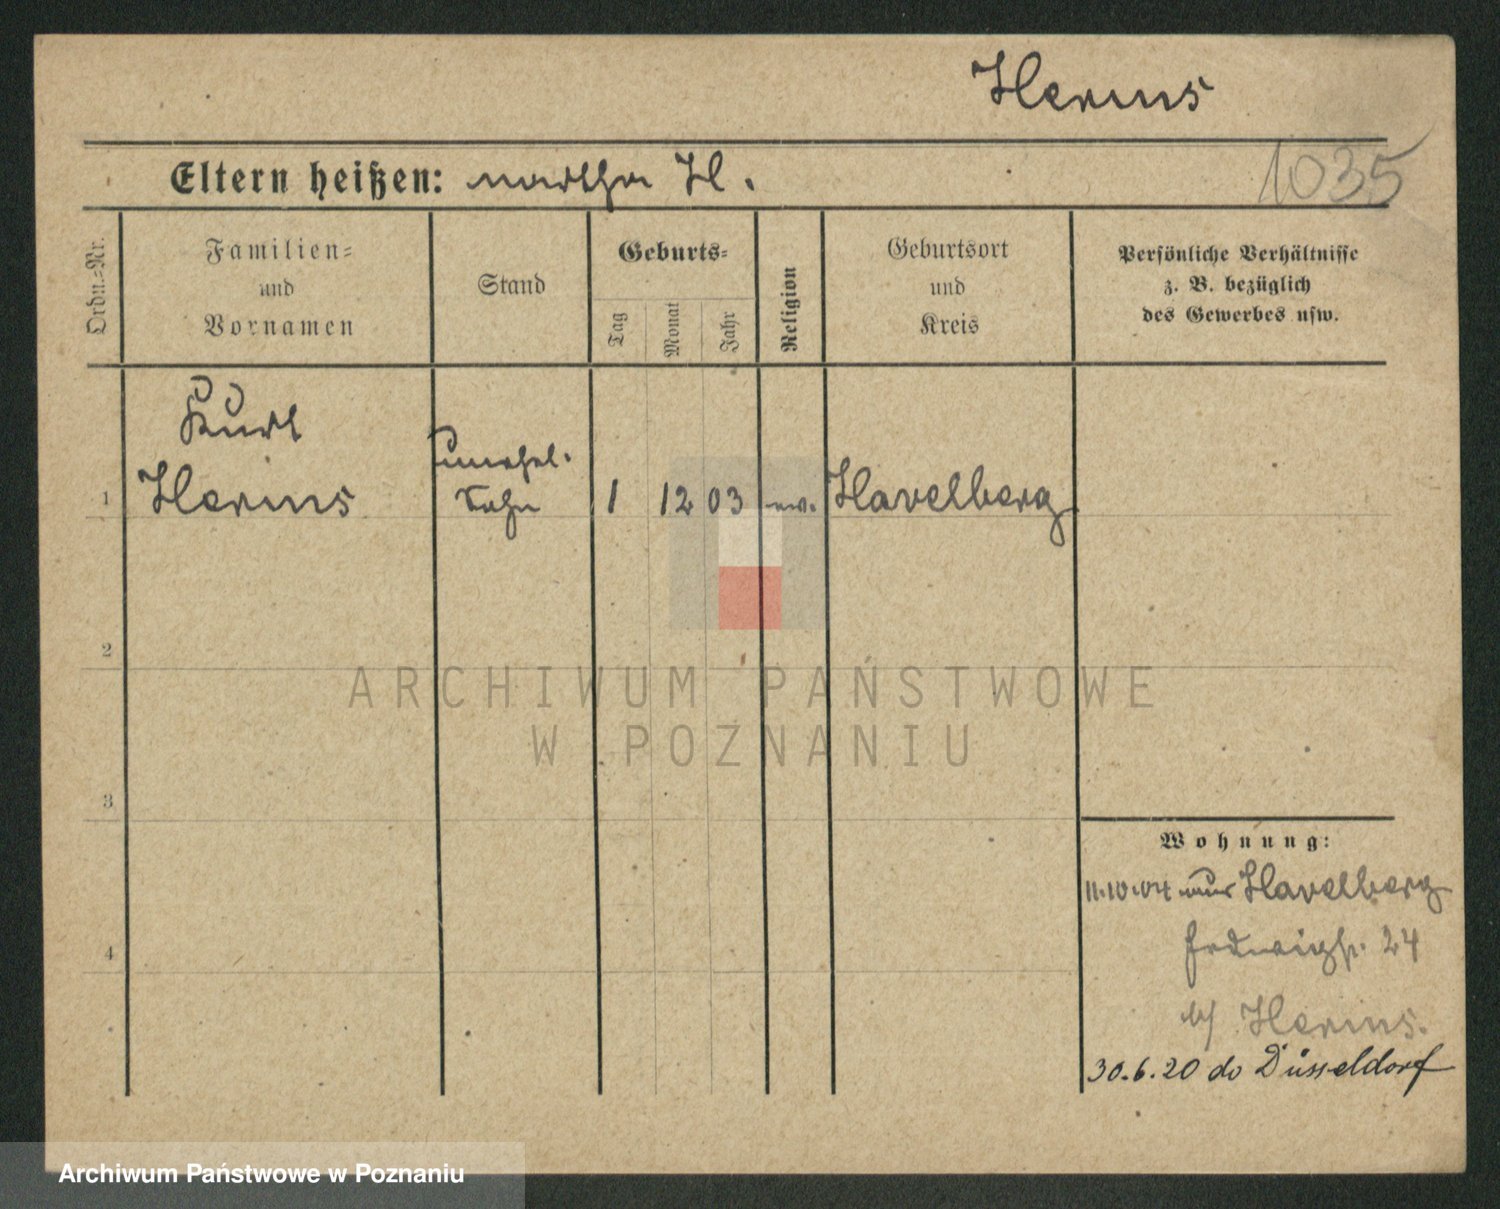 Herms
1035
Eltern heißen: Martha H.
Ordn.=Nr.
Familien=
und
Vornamen
Stand
Geburts=
Tag
Monat
Jahr
Religion
Geburtsort
und
Kreis
Persönliche Verhältnisse
z. B. bezüglich
des Gewerbes usw.
Kurt
Herms
Sohn
1
1 12 03 ev. Havelberg
2
3
4
Wohnung:
11.10.04 Havelberg
24
Herms.
30.6.20 do Düsseldorf
ARCHIWUM PAŃSTWOWE
W POZNANIU
Archiwum Państwowe w Poznaniu